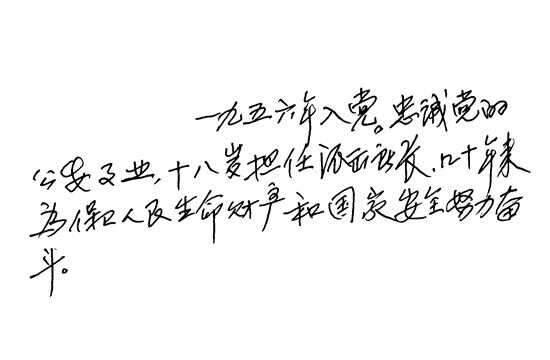 一九五六年入党。忠诚党的
公安事业,十八岁担任派出所长,几十年来
为保卫人民生命财产和国家安全努力奋
斗。